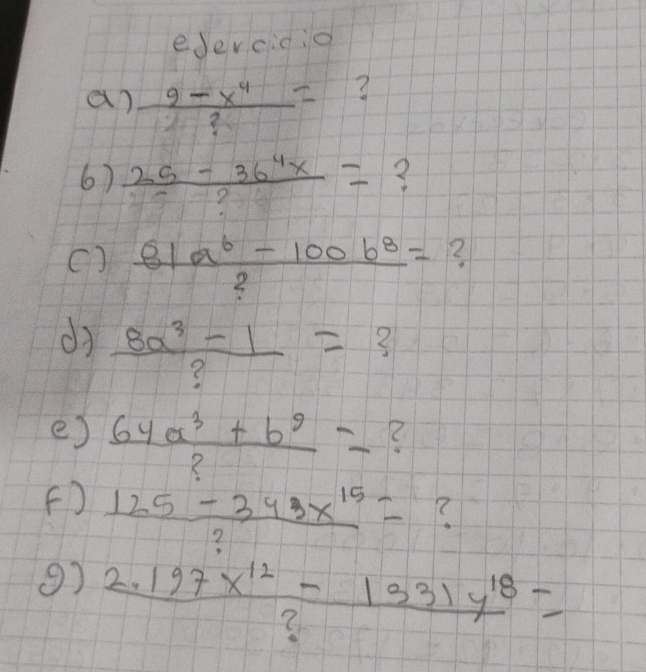 ejercicio
a) 9 - x⁴ = ?
?
b) 25 - 36⁴x = ?
?
c) 81a⁶ - 100b⁸ = ?
?
d) 8a³ - 1 = ?
?
e) 64a³ + b⁹ = ?
?
f) 125 - 343x¹⁵ = ?
?
g) 2.197x¹² - 1331y¹⁸ =
?